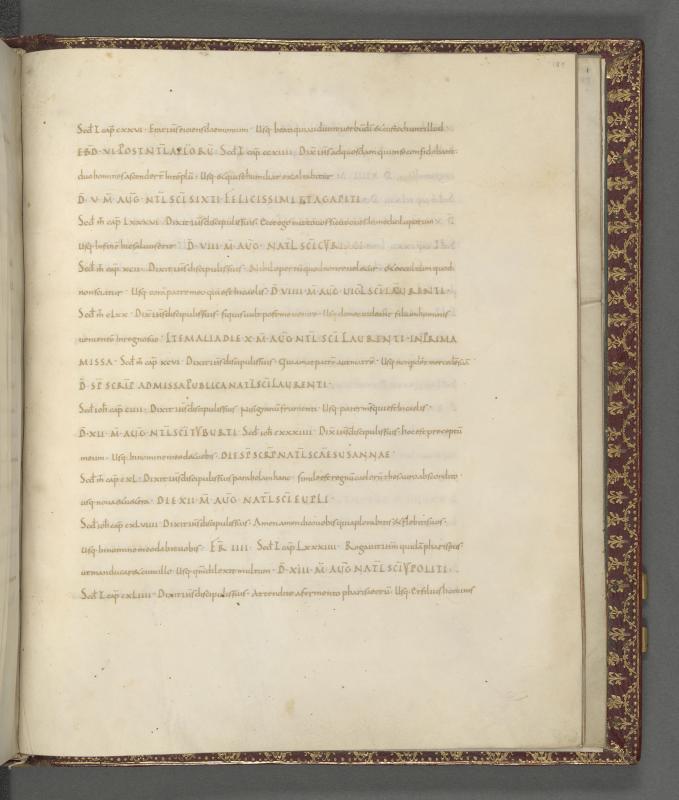 Scd L cap cxxvi · Erat ihs eiciens daemonium · Usq beati qui audiunt uerbu di & custodiunt illud
EBD · VI · POST NTL APLORU Scd L cap ccxiiii · Dix ihs ad quosdam qui in se confidebant
duo homines ascender in templu · Usq & qui se humiliat exaltabitur
D · V · M · AUG · NTL SCI SIXTI FELICISSIMI & AGAPITI
Scd M cap Lxxxvi · Dixit ihs discipulis suis · Ecce ego mitto uos sicut oues in medio luporum
Usq in fine hic saluus erit D · VIII · M · AUG · NATL SCI CYRI
Scd M cap xcii · Dixit ihs discipulis suis · Nihil opertu quod non reueletur · & occultum quod
non scietur · Usq cora patre meo qui est in caelis · D · VIIII · M · AUG · UIGL SCI LAURENTI ·
Scd M cLxx · Dix ihs discipulis suis · si quis uult post me uenire · Usq donec uideant filiu hominis
uenientem in regno suo · ITEM ALIA DIE X · M · AUG NTL SCI LAURENTI · IN PRIMA
MISSA · Scd M cap xcvi · Dixit ihs discipulis suis · Qui amat patre aut matre · Usq non perdet mercede sua
D · SP SCRIP AD MISSA PUBLICA NATL SCI LAURENTI ·
Scd ioh cap ciiii · Dixit ihs discipulis suis · nisi granu frumenti · Usq pater ms qui est in caelis ·
D · XII · M · AUG · NTL SCI TYBURTI Scd ioh cxxxiiii · Dix ihs discipulis suis · hoc est preceptu
meum · Usq in nomine meo det uobis · DIE SP SCRP NATL SCAE SUSANNAE
Scd M cap cxL · Dixit ihs discipulis suis parabolam hanc · simile est regnu caeloru thesauro abscondito
usq noua & uetera · DIE XII · M · AUG · NATL SCI EUPLI ·
Scd ioh cap cxLviiii · Dixit ihs discipulis suis · Amen amen dico uobis quia plorabitis & flebitis uos ·
Usq in nomine meo dabit uobis · FR IIII · Scd L cap Lxxxiiii · Rogauit ihm quida phariseus
ut manducar & cum illo · Usq qm dilexit multum · D · XIII · M · AUG NATL SCI YPOLITI ·
Scd L cap cxLiiii · Dixit ihs discipulis suis · Attendite a fermento pharisaeoru · Usq & filius hominis